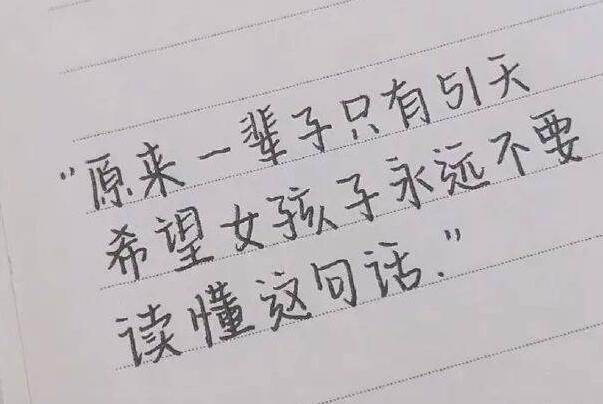 "原来一辈子只有51天
希望女孩子永远不要
读懂这句话."